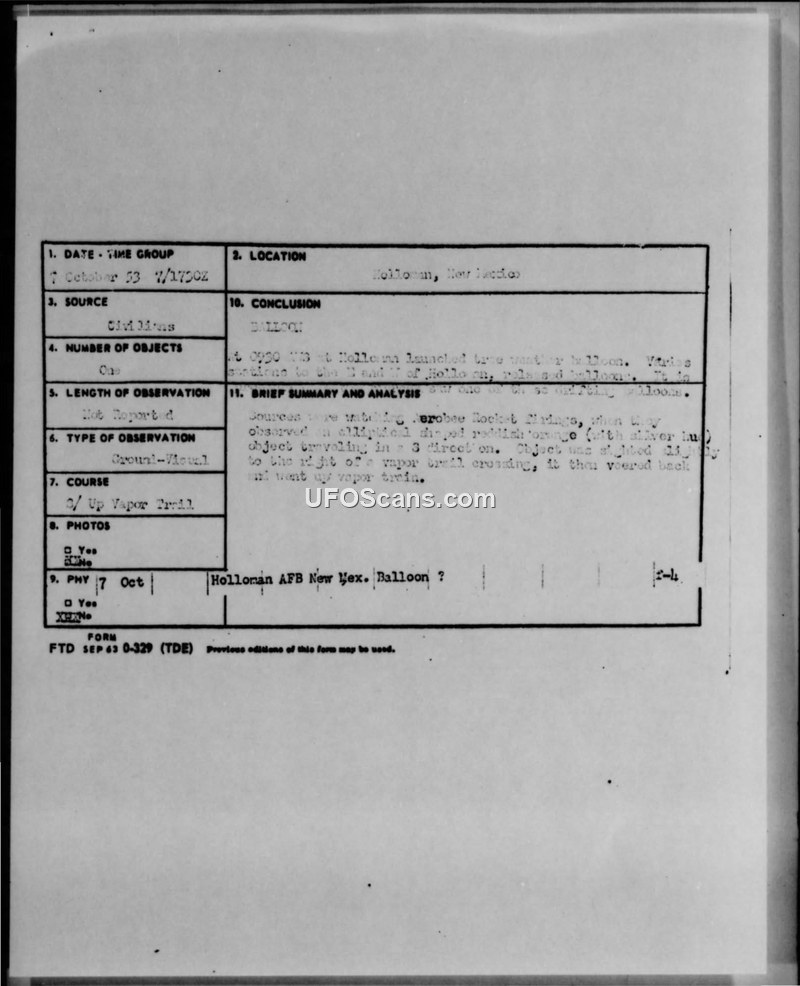 1. DATE - TIME GROUP
7 October 53 7/1730Z
2. LOCATION
Holloman, New Mexico
3. SOURCE
Civilians
10. CONCLUSION
BALLOON
4. NUMBER OF OBJECTS
One
At 0930 at Holloman launched true weather balloon. Various
stations to the N and of Holloman, released balloons. It is
saw one of these drifting balloons.
5. LENGTH OF OBSERVATION
Not Reported
11. BRIEF SUMMARY AND ANALYSIS
Sources were watching Aerobee Rocket firings, when they
observed an elliptical shaped reddish orange (with silver hue)
object traveling in a S direction. Object was sighted slightly
to the right of a vapor trail crossing, it then veered back
and went up vapor train.
6. TYPE OF OBSERVATION
Ground-Visual
7. COURSE
S/ Up Vapor Trail
UFOScans.com
8. PHOTOS
□ Yes
No
9. PHY 7 Oct Holloman AFB New Mex. Balloon ? F-4
□ Yes
No
FORM
FTD SEP 63 0-329 (TDE) Previous editions of this form may be used.